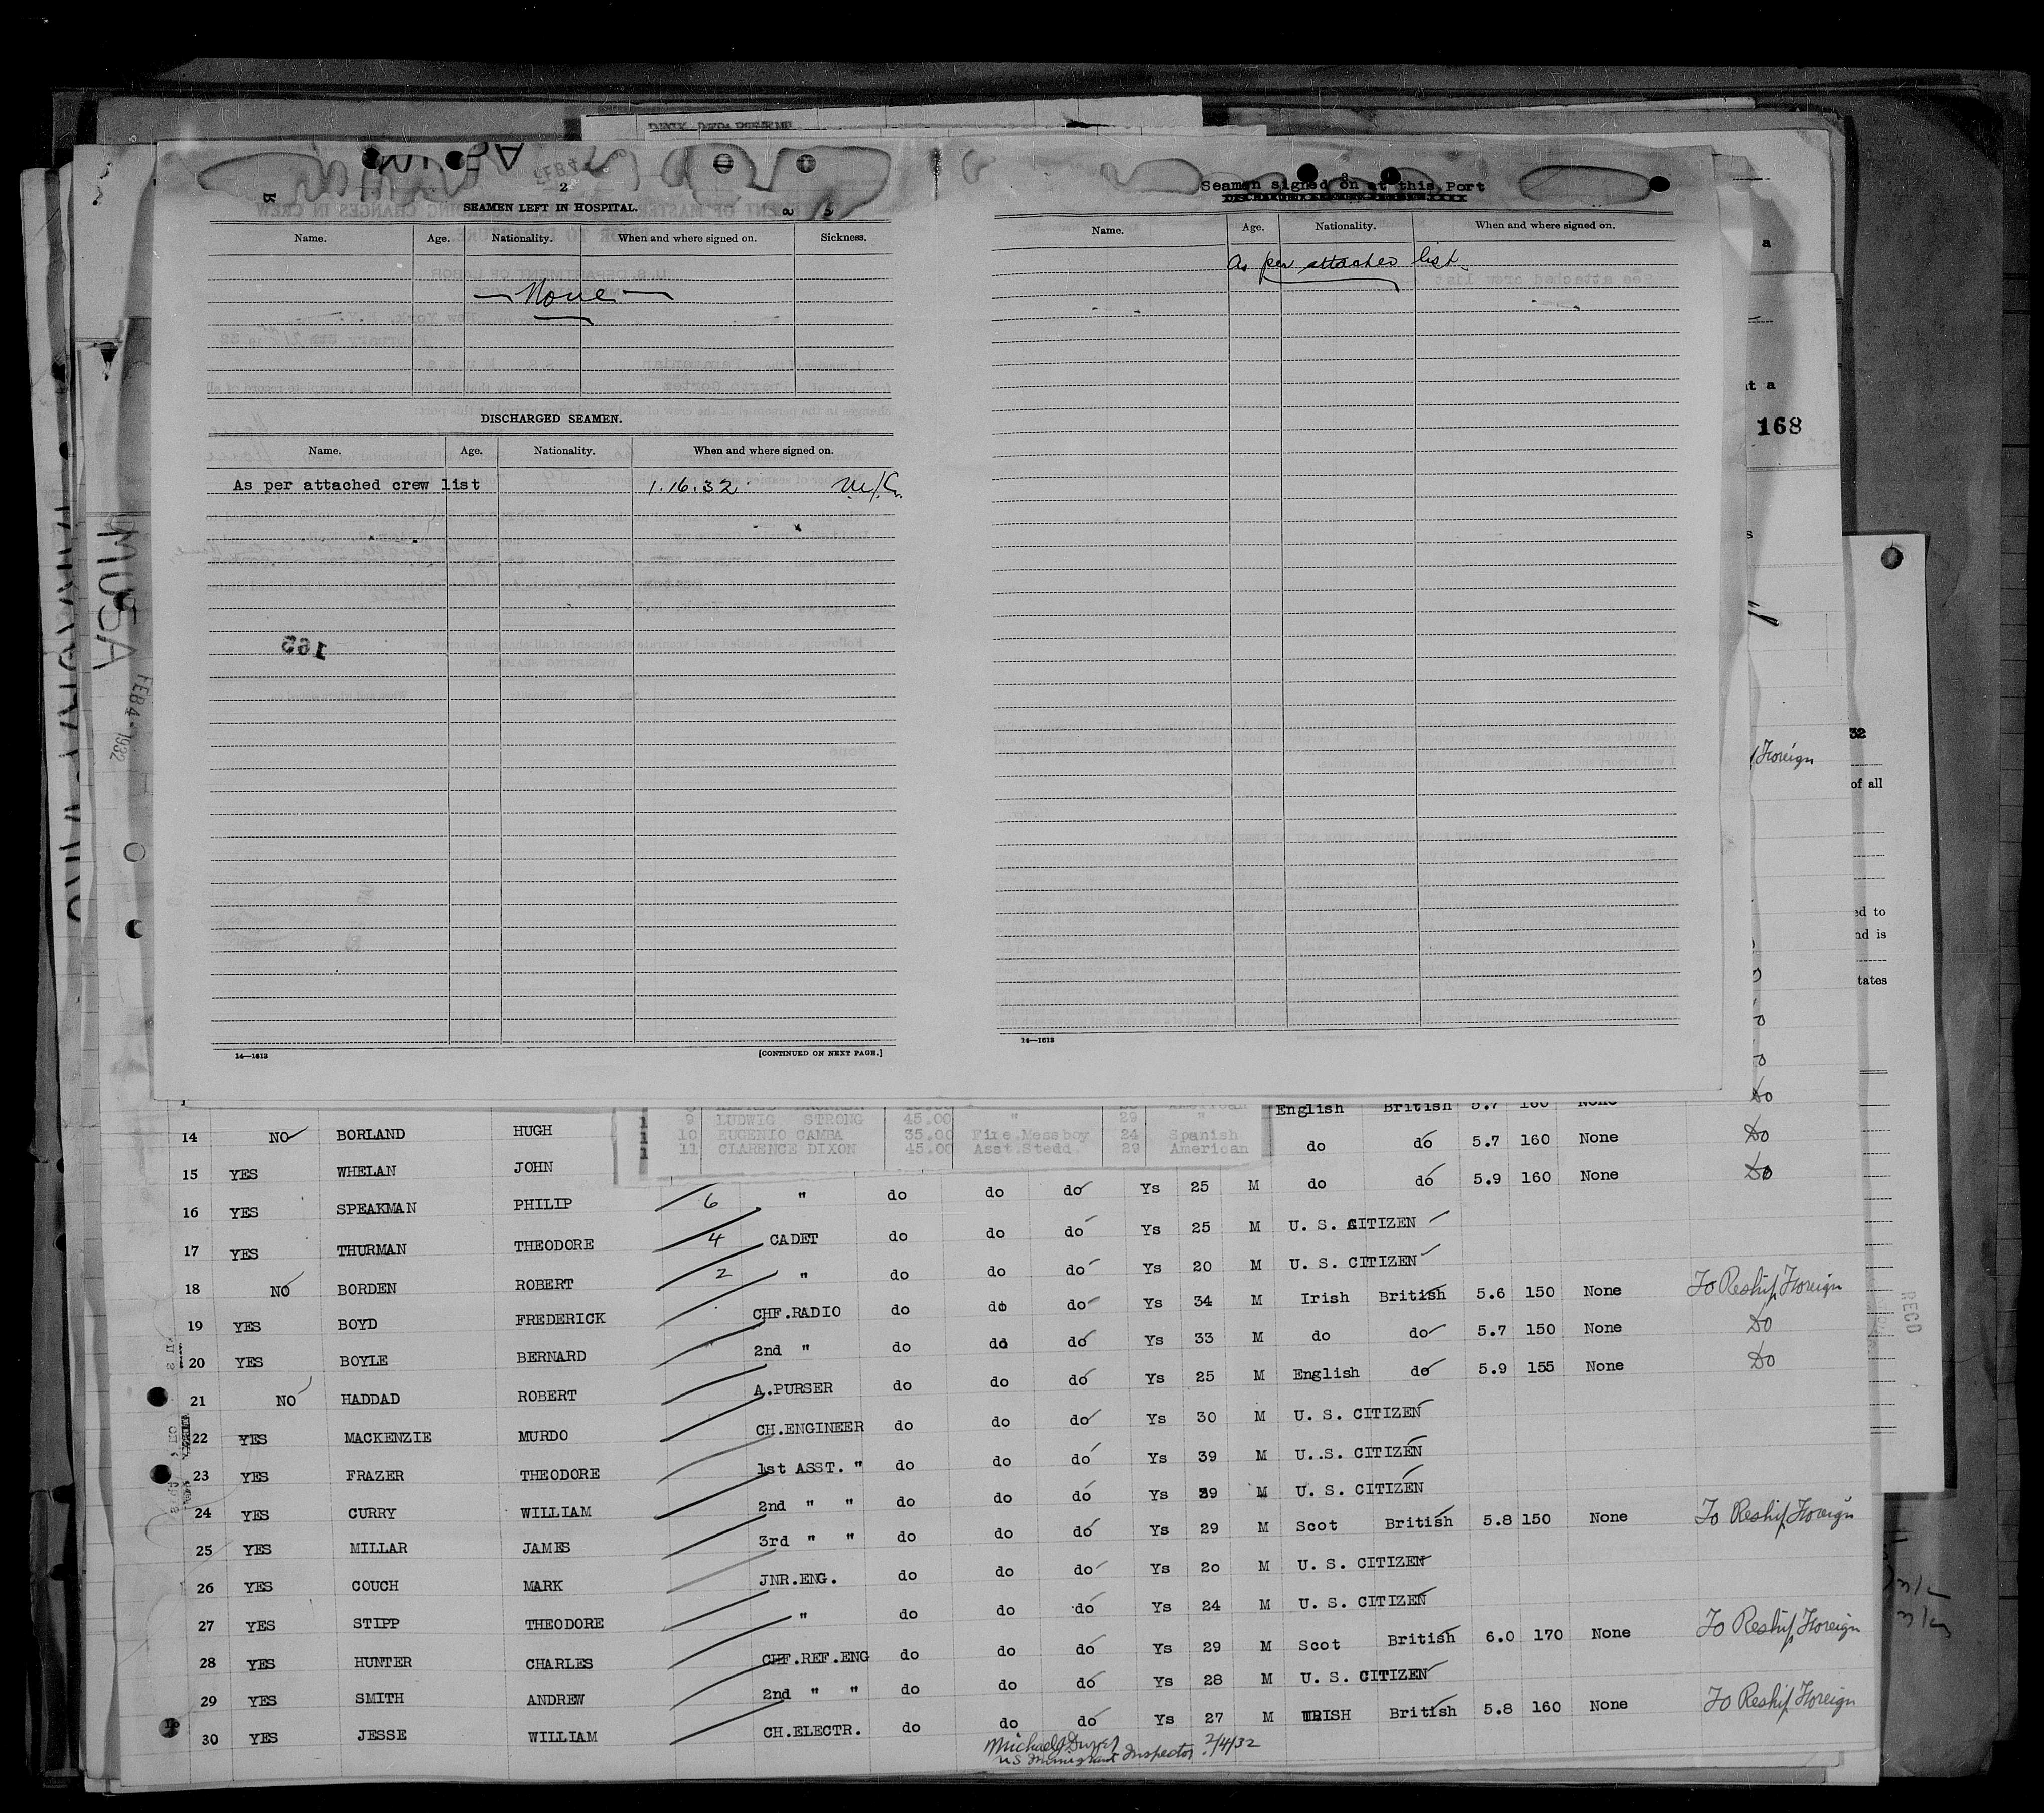 DECK DEPARTMENT
2
SEAMEN LEFT IN HOSPITAL.
Name. Age. Nationality. When and where signed on. Sickness.
None
DISCHARGED SEAMEN.
Name. Age. Nationality. When and where signed on.
As per attached crew list 1.16.32
165
14—1613 [CONTINUED ON NEXT PAGE.]
3
Seamen signed on at this Port
Name. Age. Nationality. When and where signed on.
As per attached list
14—1613
a
t a
168
s
Foreign
32
of all
ed to
nd is
tates
MUSA
FEB 4 1932
RECD
9 LUDWIG STRONG 45.00 " 29 "
10 EUGENIO CAMBA 35.00 Fire.Messboy 24 Spanish
11 CLARENCE DIXON 45.00 Asst.Stedd. 29 American
English British 5.7 160 None Do
14 NO BORLAND HUGH do do 5.7 160 None Do
15 YES WHELAN JOHN do do 5.9 160 None Do
16 YES SPEAKMAN PHILIP 6 " do do do Ys 25 M
17 YES THURMAN THEODORE 4 CADET do do do Ys 25 M U. S. CITIZEN
18 NO BORDEN ROBERT 2 " do do do Ys 20 M U. S. CITIZEN
19 YES BOYD FREDERICK CHF.RADIO do do do Ys 34 M Irish British 5.6 150 None To Reship Foreign
20 YES BOYLE BERNARD 2nd " do do do Ys 33 M do do 5.7 150 None Do
21 NO HADDAD ROBERT A.PURSER do do do Ys 25 M English do 5.9 155 None Do
22 YES MACKENZIE MURDO CH.ENGINEER do do do Ys 30 M U. S. CITIZEN
23 YES FRAZER THEODORE 1st ASST. " do do do Ys 39 M U..S. CITIZEN
24 YES CURRY WILLIAM 2nd " " do do do Ys 39 M U. S. CITIZEN
25 YES MILLAR JAMES 3rd " " do do do Ys 29 M Scot British 5.8 150 None To Reship Foreign
26 YES COUCH MARK JNR.ENG. do do do Ys 20 M U. S. CITIZEN
27 YES STIPP THEODORE " do do do Ys 24 M U. S. CITIZEN
28 YES HUNTER CHARLES CHF.REF.ENG do do do Ys 29 M Scot British 6.0 170 None To Reship Foreign
29 YES SMITH ANDREW 2nd " " do do do Ys 28 M U. S. CITIZEN
30 YES JESSE WILLIAM CH.ELECTR. do do do Ys 27 M IRISH British 5.8 160 None To Reship Foreign
Michael 2/4/32
US Immigrant Inspector